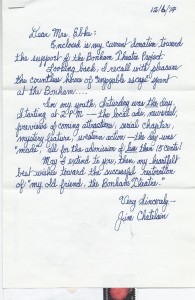 12/6/97
Dear Mrs. Ebke:
Enclosed is my current donation toward
the support of the Bonham Theatre Project.
Looking back, I recall with pleasure
the countless hours of enjoyable escape spent
at the Bonham...
In my youth, Saturday was the day.
Starting at 2 P.M. — the local ads, newsreel,
previews of coming attractions, serial chapter,
mystery feature, western action — the day was
"made" all for the admission of less than 15 cents!
May I extend to you, then, my heartfelt
best wishes toward the successful restoration
of "my old friend, the Bonham Theatre."
Very Sincerely—
Jim